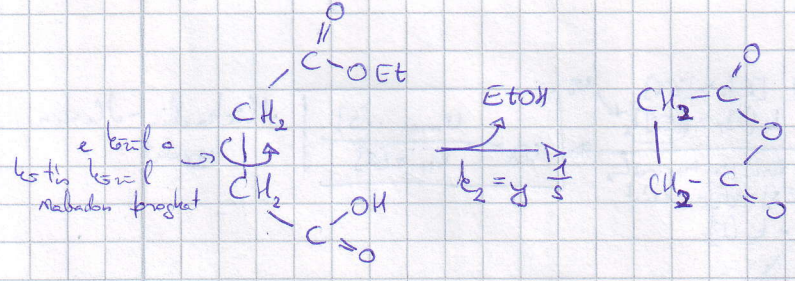 O
C
O Et
CH2
e körül a
kötés körül
szabadon foroghat
CH2
OH
C
O
EtOH
k2 = y 1/s
O
CH2-C
O
CH2-C
O